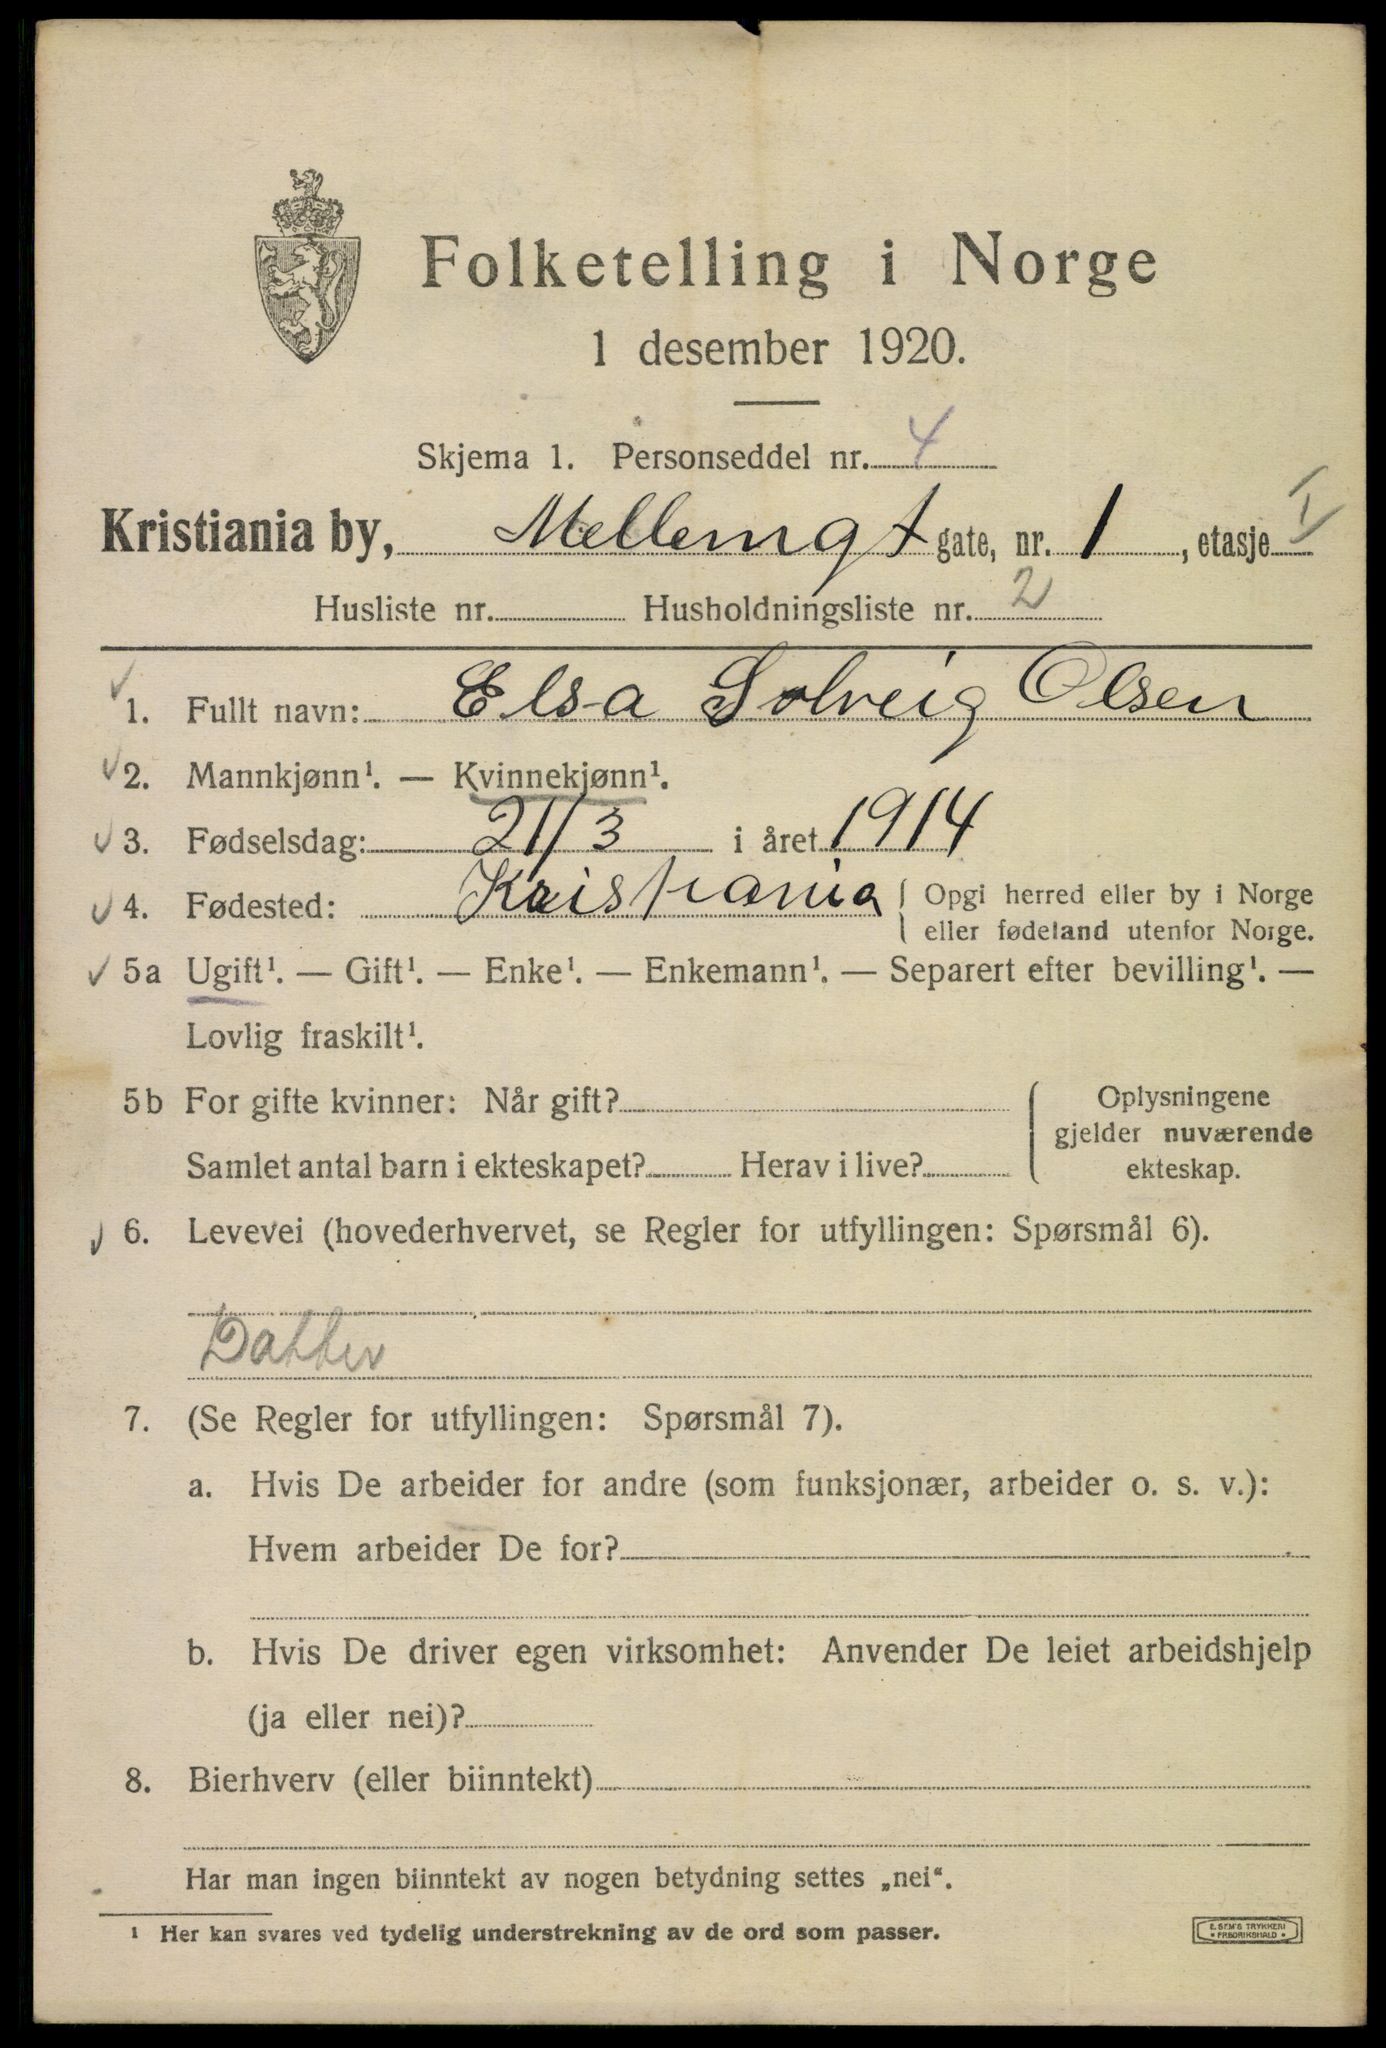 Folketelling i Norge
1 desember 1920.
Skjema 1. Personseddel nr. 4
Kristiania by, Mellemgt gate, nr. 1, etasje I
Husliste nr. Husholdningsliste nr. 2
1. Fullt navn: Elsa Solveig Olsen
2. Mannkjønn¹. — Kvinnekjønn¹.
3. Fødselsdag: 21/3 i året 1914
4. Fødested: Kristiania { Opgi herred eller by i Norge
eller fødeland utenfor Norge.
5a Ugift¹. — Gift¹. — Enke¹. — Enkemann¹. — Separert efter bevilling¹. —
Lovlig fraskilt¹.
5b For gifte kvinner: Når gift? { Oplysningene
gjelder nuværende
Samlet antal barn i ekteskapet? Herav i live? ekteskap.
6. Levevei (hovederhvervet, se Regler for utfyllingen: Spørsmål 6).
Datter
7. (Se Regler for utfyllingen: Spørsmål 7).
a. Hvis De arbeider for andre (som funksjonær, arbeider o. s. v.):
Hvem arbeider De for?
b. Hvis De driver egen virksomhet: Anvender De leiet arbeidshjelp
(ja eller nei)?
8. Bierhverv (eller biinntekt)
Har man ingen biinntekt av nogen betydning settes „nei“.
¹ Her kan svares ved tydelig understrekning av de ord som passer.
E. SEM'S TRYKKERI
• FREDRIKSHALD •